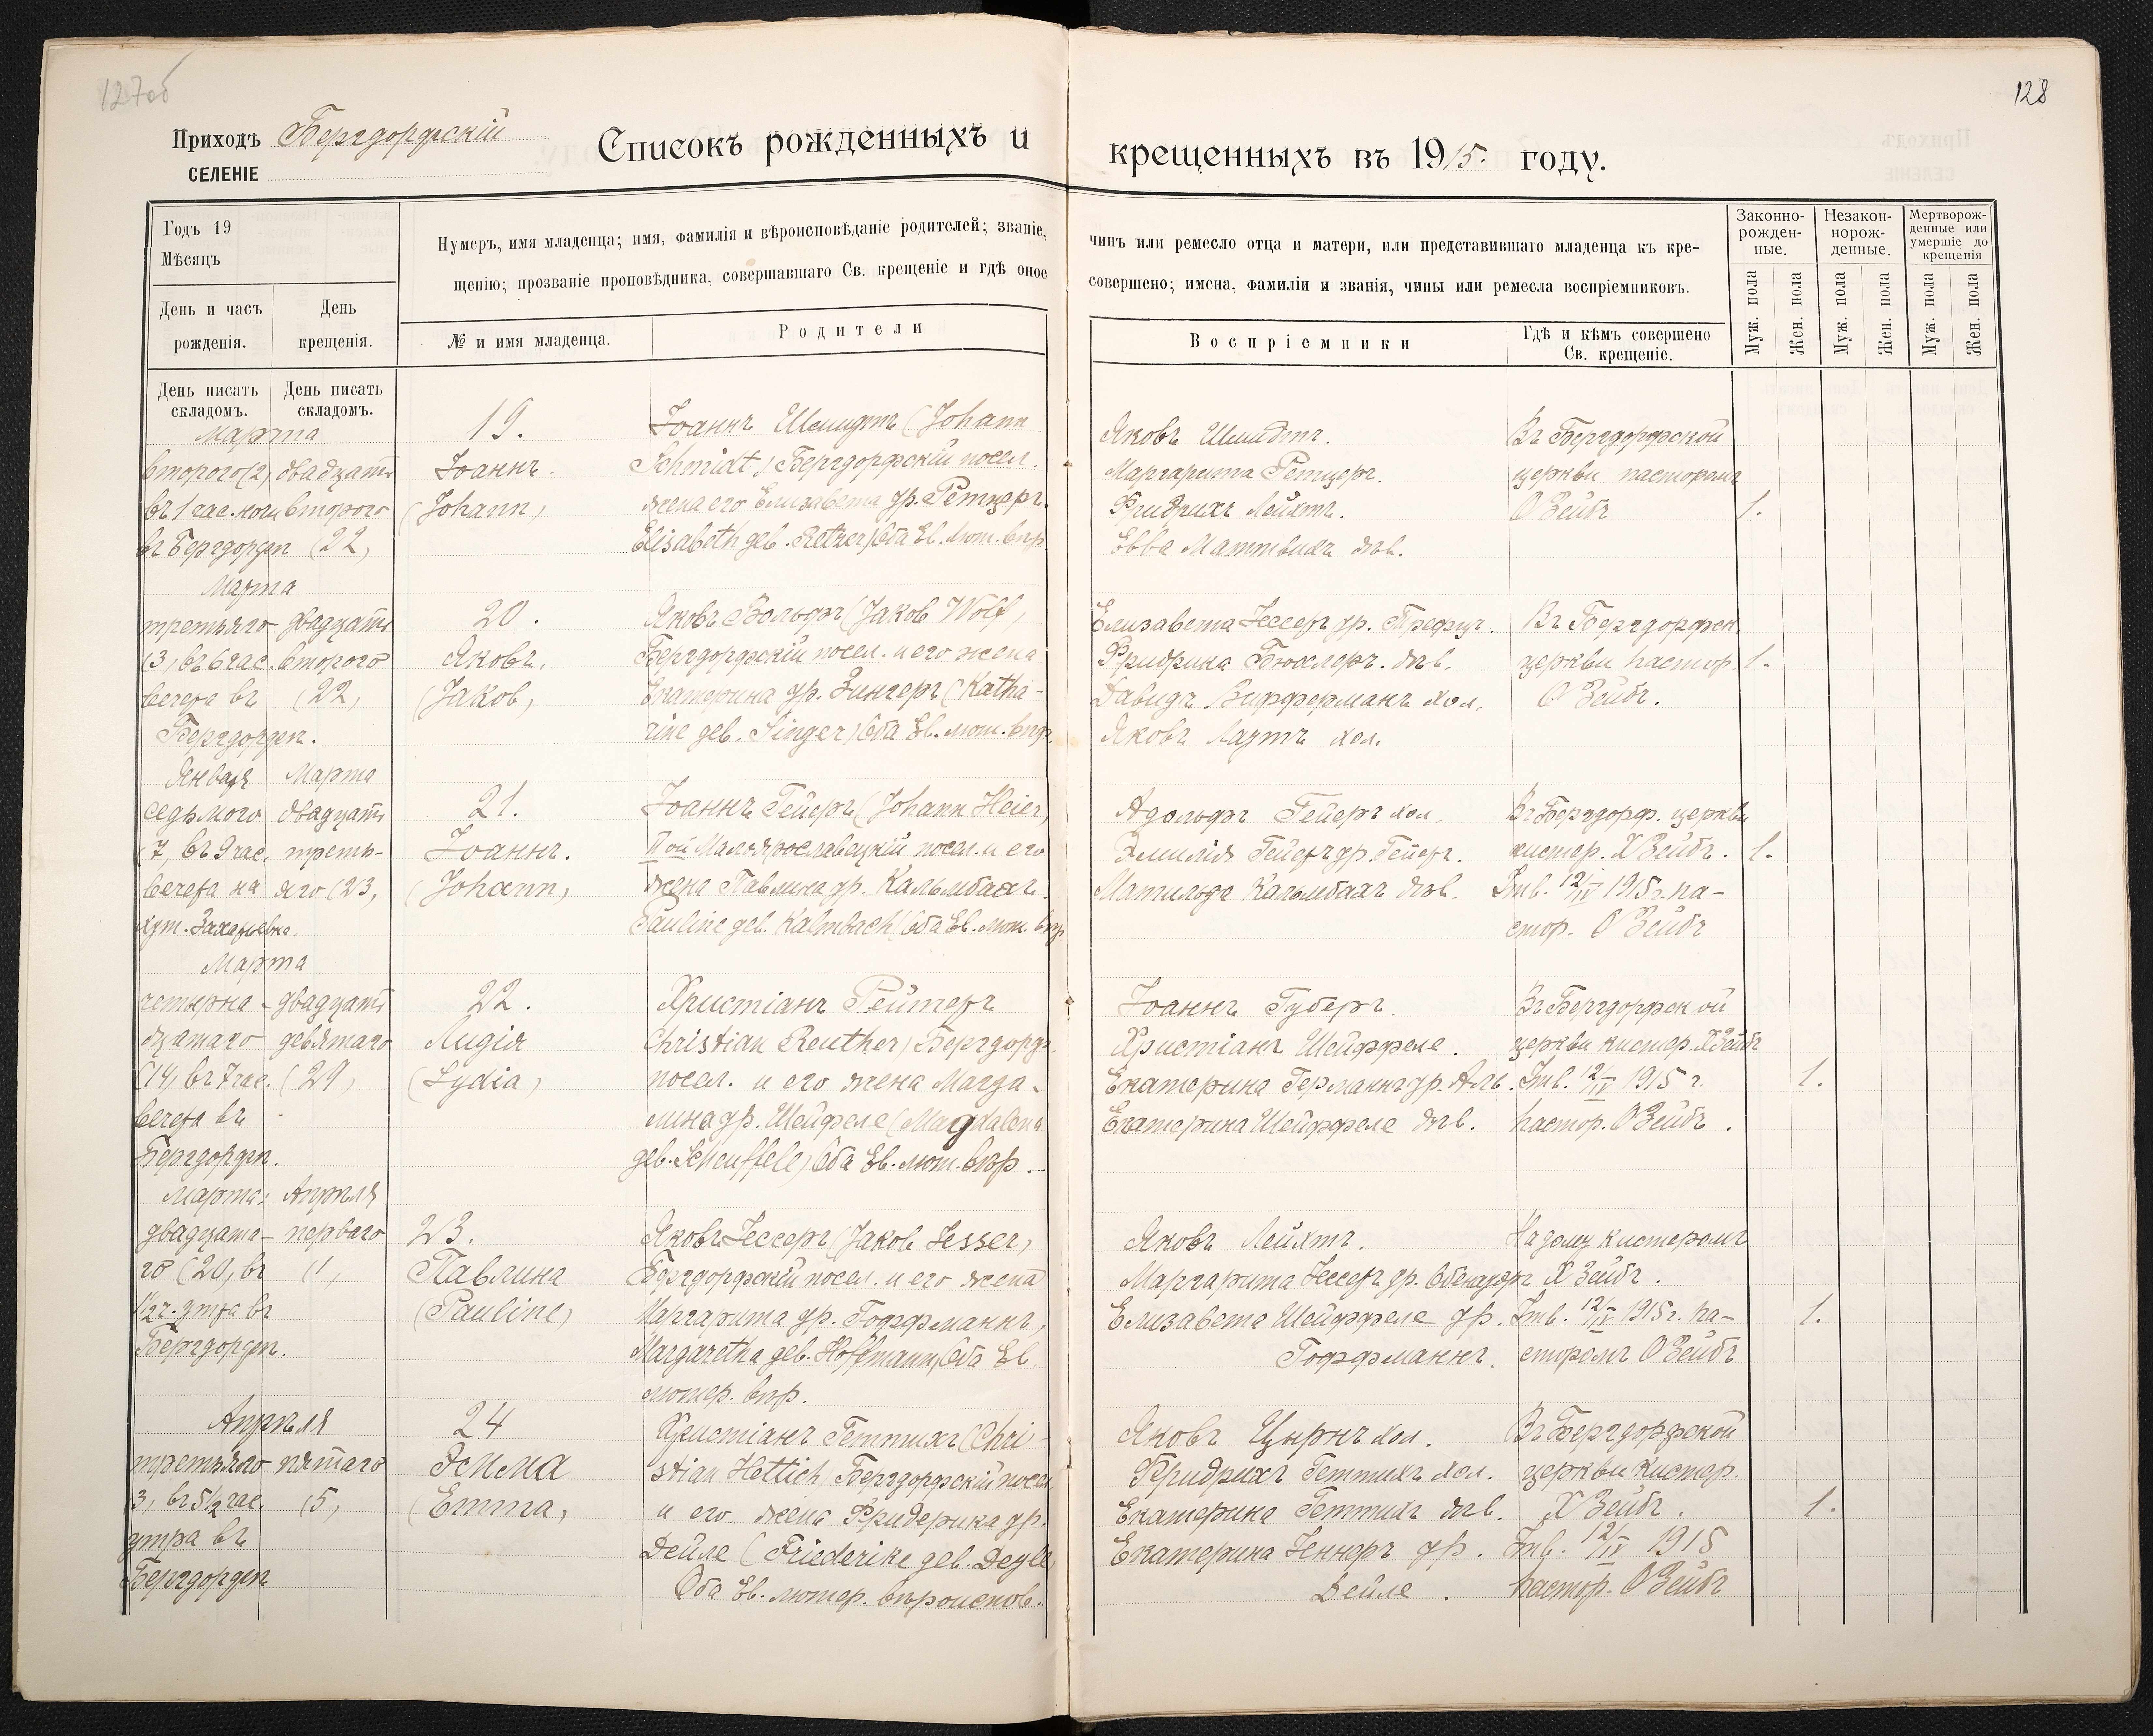 127об
128
Приходъ Бергдорфскій
СЕЛЕНІЕ
Списокъ рожденныхъ и крещенныхъ въ 1915. году.
Годъ 19
Мѣсяцъ
День и часъ рожденія.
День крещенія.
Нумеръ, имя младенца; имя, фамилія и вѣроисповѣданіе родителей; званіе, чинъ или ремесло отца и матери, или представившаго младенца къ кре-
щенію; прозваніе проповѣдника, совершавшаго Св. крещеніе и гдѣ оное совершено; имена, фамиліи и званія, чины или ремесла воспріемниковъ.
№ и имя младенца.
Родители
Воспріемники
Гдѣ и кѣмъ совершено
Св. крещеніе.
Законно-
рожден-
ные.
Незакон-
норож-
денные.
Мертворож-
денные или
умершіе до
крещенія
Муж. пола
Жен. пола
Муж. пола
Жен. пола
Муж. пола
Жен. пола
День писать
складомъ.
День писать
складомъ.
Марта
второго (2)
въ 1 час. ночи
въ Бергдорфѣ
двадцать
второго
(22)
19.
Іоаннъ.
(Johann)
Іоаннъ Шмидтъ (Johann
Schmidt) Бергдорфскій посел.
жена его Елизавета ур. Ретцеръ
Elisabeth geb. Retzer) Оба Ев. лют. вѣр.
Яковъ Шмидтъ.
Маргарита Ретцеръ.
Фридрихъ Лейхтъ.
Ева дѣв.
Въ Бергдорфской
церкви пасторомъ
О Зейбъ
1.
Марта
третьяго
(3) въ 6 час.
вечера въ
Бергдорфѣ.
двадцать
второго
(22)
20.
Яковъ.
(Jakob)
Яковъ Вольфъ (Jakob Wolf)
Бергдорфскій посел. и его жена
Екатерина ур. Зингеръ (Katha-
rine geb. Singer) Оба Ев. лют. вѣр.
Елизавета Іессеръ ур.
дѣв.
Давидъ хол.
Яковъ Лаутъ хол.
Въ Бергдорфск.
церкви пастор.
О Зейбъ.
1.
Января
седьмого
(7) въ 9 час.
вечера на
хут.
Марта
двадцать
треть-
яго (23)
21.
Іоаннъ.
(Johann)
Іоаннъ Гейеръ (Johann Heier)
II ой Малоярославецкій посел. и его
жена Павлина ур. Кальмбахъ
Pauline geb. Kalmbach) Оба Ев. лют. вѣр.
Адольфъ Гейеръ хол.
Эмилія Гейеръ ур. Гейеръ.
Матильда Кальмбахъ дѣв.
Въ Бергдорф. церкви
кистер. Х Зейбъ.
Утв. 12/IV 1915 г. па-
стор. О Зейбъ
1.
Марта
четырна-
дцатаго
(14) въ 7 час.
вечера въ
Бергдорфѣ.
двадцать
девятаго
(29)
22.
Лидія
(Lydia)
Христіанъ Рейтеръ
Christian Reuther) Бергдорф.
посел. и его жена Магда-
лина ур. Шейфеле (Magdalena
geb. Scheuffele) Оба Ев. лют. вѣр.
Іоаннъ Губеръ.
Христіанъ Шейффеле.
Екатерина Германнъ ур.
Екатерина Шейффеле дѣв.
Въ Бергдорфской
церкви кистер. Х Зейбъ
Утв. 12/IV 1915 г.
пастор. О Зейбъ.
1.
Марта:
двадцата-
го (20) въ
1½ ч. утра въ
Бергдорфѣ.
Апрѣля
перваго
(1)
23.
Павлина
(Pauline)
Яковъ Іессеръ (Jakob Jesser)
Бергдорфскій посел. и его жена
Маргарита ур. Гоффманнъ,
Margaretha geb. Hoffmann) Оба Ев.
лютер. вѣр.
Яковъ Лейхтъ.
Маргарита Іессеръ ур.
Елизавета Шейффеле ур.
Гоффманнъ.
На дому кистеромъ
Х Зейбъ.
Утв. 12/IV 1915 г. па-
сторомъ О Зейбъ
1.
Апрѣля
третьяго
3) въ 5½ час.
утра въ
Бергдорфѣ
пятаго
(5)
24
Эмма
(Emma)
Христіанъ Геттихъ (Chri-
stian Hettich) Бергдорфскій посел.
и его жена Фридерика ур.
Дейле (Friederike geb. Deyle)
Оба Ев. лютер. вѣроисповѣд.
Яковъ Цырнъ хол.
Фридрихъ Геттихъ хол.
Екатерина Геттихъ дѣв.
Екатерина ур.
Дейле.
Въ Бергдорфской
церкви кистер.
Х Зейбъ.
Утв. 12/IV 1915
пастор. О Зейбъ
1.